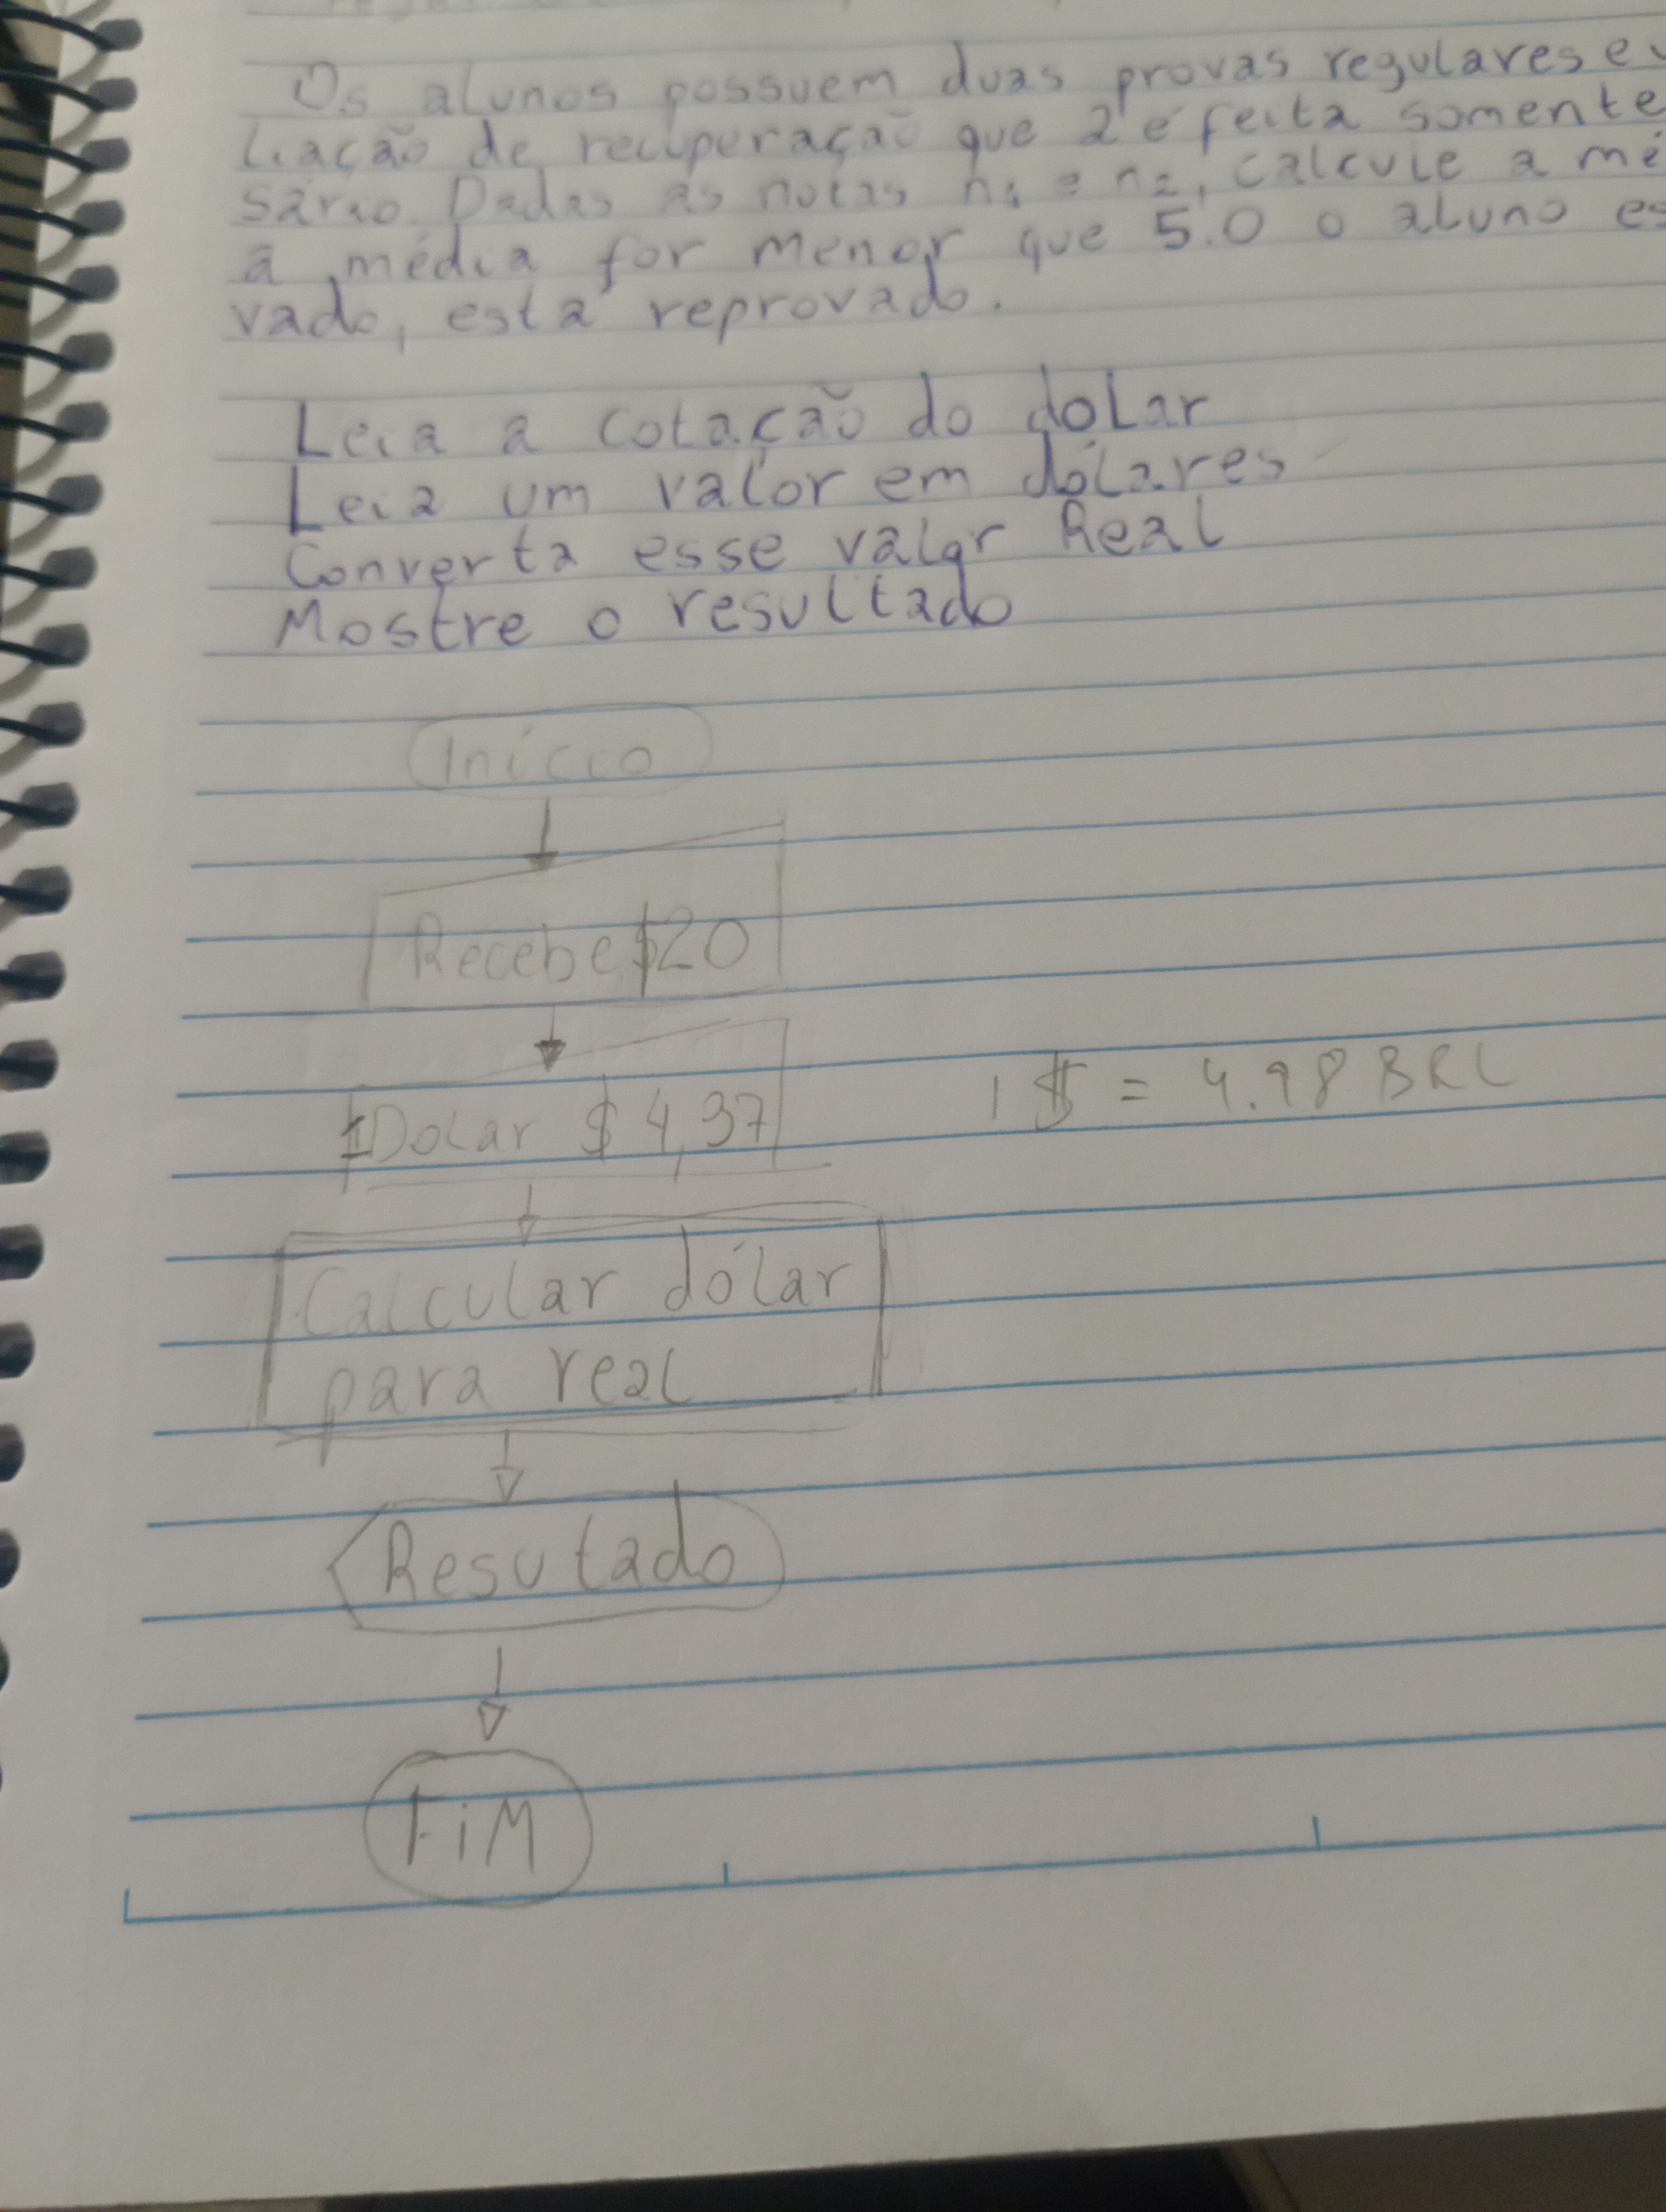 Os alunos possuem duas provas regulares e
liação de recuperação que 2 é feita somente
sário. Dadas as notas n1 e n2, calcule a mé
a média for menor que 5.0 o aluno es
vado, está reprovado.
Leia a cotação do doLar
Leia um valor em dólares
Converta esse valor Real
Mostre o resultado
Início
Recebe $20
1 Dolar $ 4,37
1 $ = 4.98 BRL
Calcular dólar
para real
Resutado
FiM